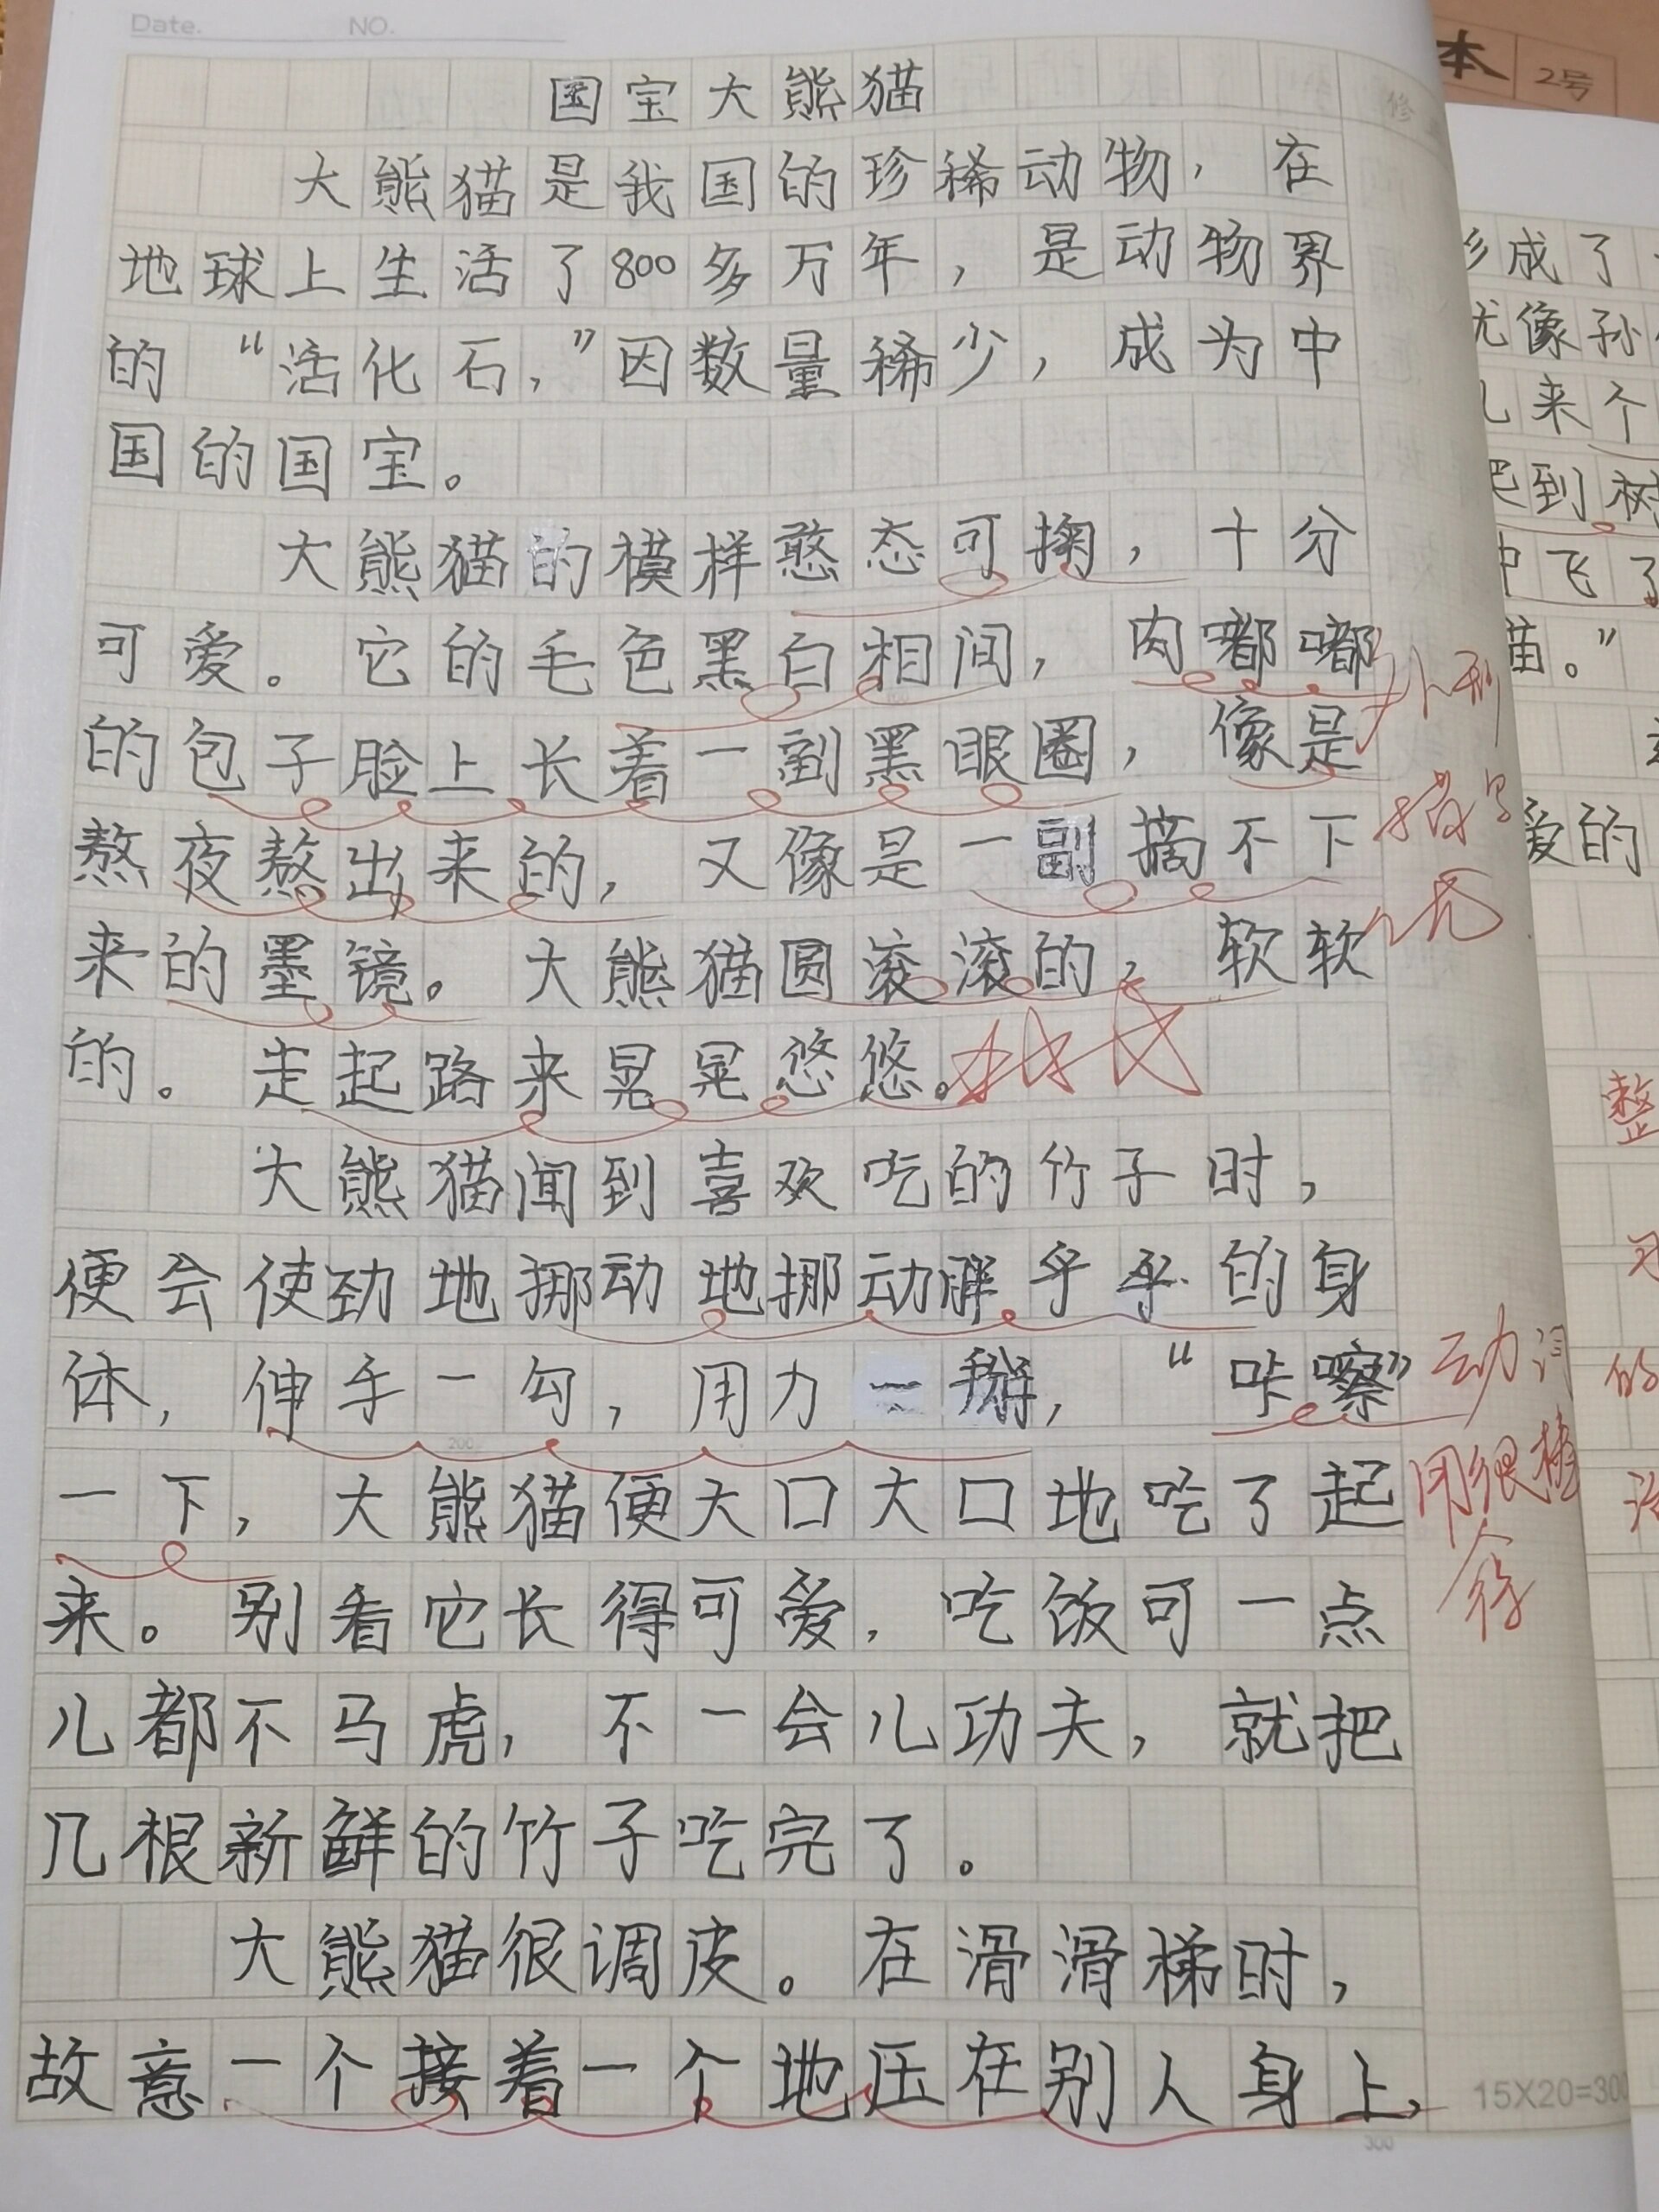 Date. NO.
国宝大熊猫
大熊猫是我国的珍稀动物，在
地球上生活了800多万年，是动物界
的“活化石，”因数量稀少，成为中
国的国宝。
大熊猫的模样憨态可掬，十分
可爱。它的毛色黑白相间，肉嘟嘟
的包子脸上长着一副黑眼圈，像是
熬夜熬出来的，又像是一副摘不下
来的墨镜。大熊猫圆滚滚的，软软
的。走起路来晃晃悠悠。
大熊猫闻到喜欢吃的竹子时，
便会使劲地挪动地挪动胖乎乎的身
体，伸手一勾，用力一掰，“咔嚓”
一下，大熊猫便大口大口地吃了起
来。别看它长得可爱，吃饭可一点
儿都不马虎，不一会儿功夫，就把
几根新鲜的竹子吃完了。
大熊猫很调皮。在滑滑梯时，
故意一个接着一个地压在别人身上，
外形
描写
优
动词
用得很棒
15X20=300
300
本
2号
形成了
犹像孙
儿来个
把到树
中飞了
猫。”
爱的
整
的